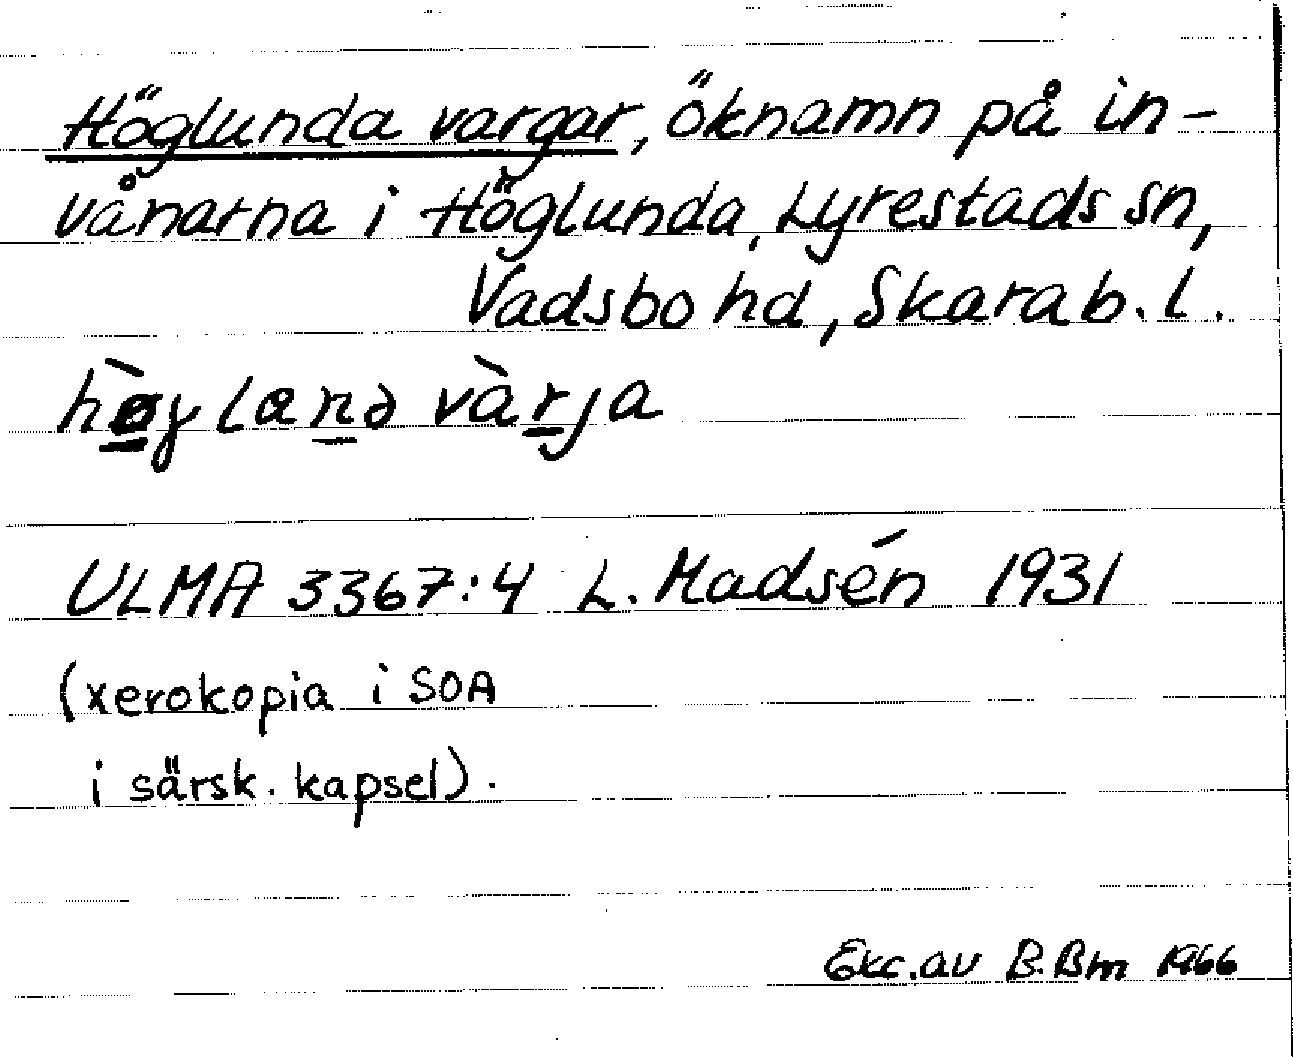 Höglunda vargar, öknamn på in-
vånarna i Höglunda, Lyrestads sn,
Vadsbo hd, Skarab. l.
hø̀gland vàrja
ULMA 3367:4 L. Madsén 1931
(xerokopia i SOA
i särsk. kapsel).
Exc. av B. Bm 1966